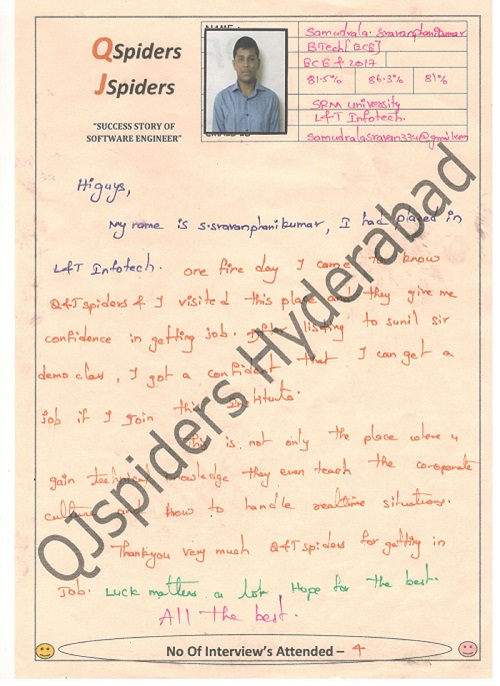 QSpiders
JSpiders
"SUCCESS STORY OF
SOFTWARE ENGINEER"
NAME :
Samudrala. Sravanphanikumar
BTech[ECE]
ECE & 2017
81.5% 86.3% 81%
SRM university
L&T Infotech.
Samudralasravan334@gmail.com
Higuys,
My name is S.Sravanphanikumar, I had placed in
L&T Infotech. one fine day I came to know
Q&Jspiders & I visited this place and they give me
confidence in getting job. After listing to sunil sir
demo class, I got a confident that I can get a
job if I join this Institute.
This is not only the place where u
gain technical knowledge they even teach the co-oporate
culture and how to handle realtime situations.
Thankyou very much Q&Jspiders for getting in
Job. Luck matters a lot Hope for the best.
All the best.
QJspiders Hyderabad
No Of Interview's Attended – 4